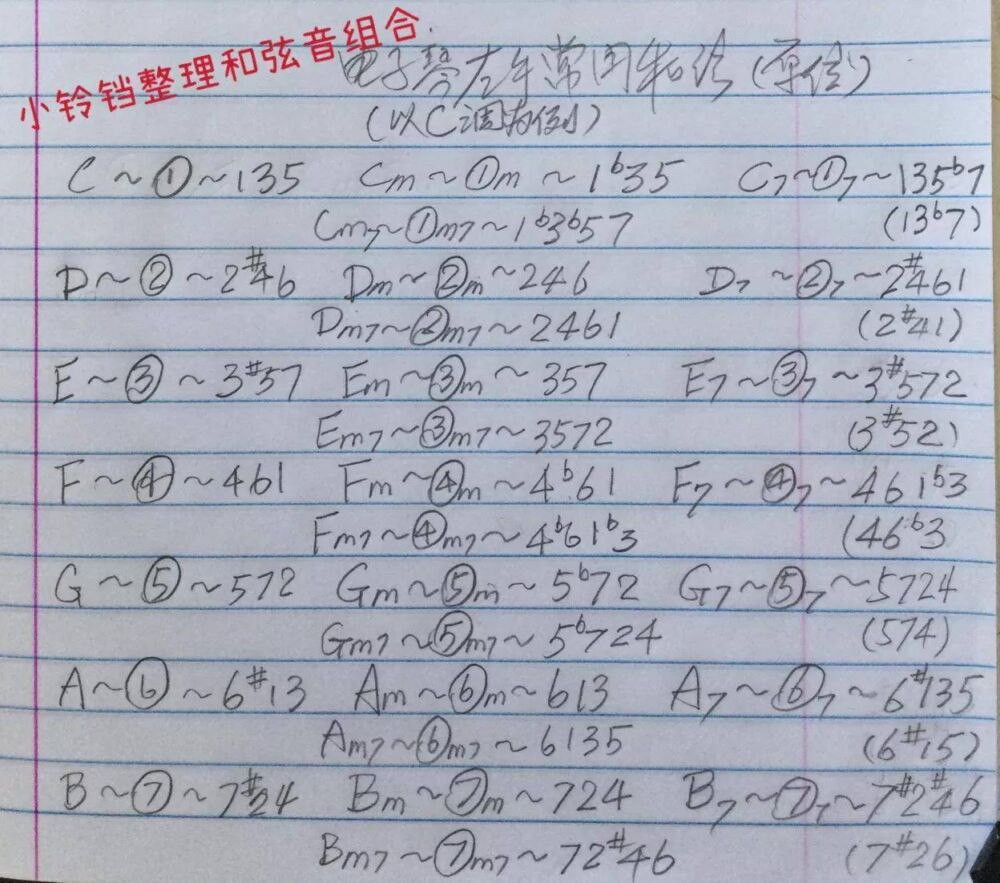 小铃铛整理和弦音组合
电子琴左手常用和弦(原位)
(以C调为例)
C~①~135 Cm~①m~1ᵇ35 C7~①7~135ᵇ7
Cm7~①m7~1ᵇ3ᵇ57 (13ᵇ7)
D~②~2#46 Dm~②m~246 D7~②7~2#461
Dm7~②m7~2461 (2#41)
E~③~3#57 Em~③m~357 E7~③7~3#572
Em7~③m7~3572 (3#52)
F~④~461 Fm~④m~4ᵇ61 F7~④7~461ᵇ3
Fm7~④m7~4ᵇ61ᵇ3 (46ᵇ3
G~⑤~572 Gm~⑤m~5ᵇ72 G7~⑤7~5724
Gm7~⑤m7~5ᵇ724 (574)
A~⑥~6#13 Am~⑥m~613 A7~⑥7~6#135
Am7~⑥m7~6135 (6#15)
B~⑦~7#24 Bm~⑦m~724 B7~⑦7~7#2#46
Bm7~⑦m7~72#46 (7#26)